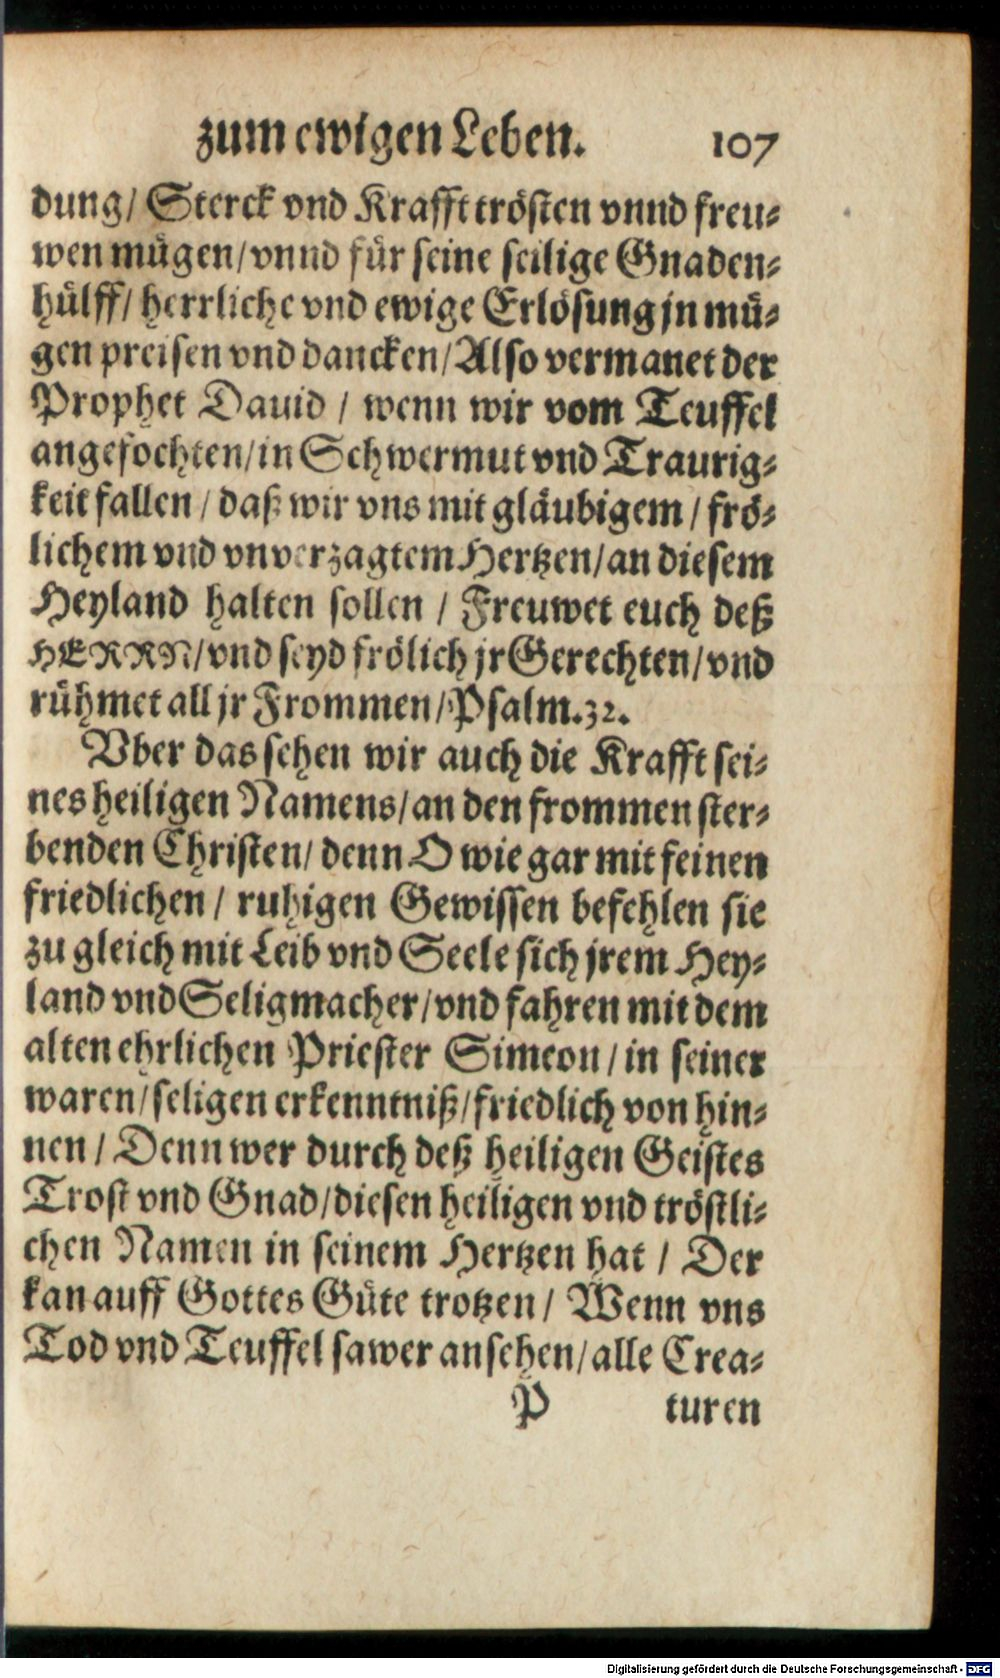 zum ewigen Leben. 107
dung/ Sterck vnd Krafft trösten vnnd freu-
wen mügen/ vnnd für seine seilige Gnaden-
hülff/ herrliche vnd ewige Erlösung jn mü-
gen preisen vnd dancken/ Also vermanet der
Prophet Dauid / wenn wir vom Teuffel
angefochten/ in Schwermut vnd Traurig-
keit fallen / daß wir vns mit gläubigem / frö-
lichem vnd vnverzagtem Hertzen/ an diesem
Heyland halten sollen / Freuwet euch deß
HERRN/ vnd seyd frölich jr Gerechten/ vnd
rühmet all jr Frommen/ Psalm. 32.
Vber das sehen wir auch die Krafft sei-
nes heiligen Namens/ an den frommen ster-
benden Christen/ denn O wie gar mit feinen
friedlichen / ruhigen Gewissen befehlen sie
zu gleich mit Leib vnd Seele sich jrem Hey-
land vnd Seligmacher/ vnd fahren mit dem
alten ehrlichen Priester Simeon / in seiner
waren/ seligen erkenntniß/ friedlich von hin-
nen / Denn wer durch deß heiligen Geistes
Trost vnd Gnad/ diesen heiligen vnd tröstli-
chen Namen in seinem Hertzen hat / Der
kan auff Gottes Güte trotzen / Wenn vns
Tod vnd Teuffel sawer ansehen/ alle Crea-
P turen
Digitalisierung gefördert durch die Deutsche Forschungsgemeinschaft - DFG